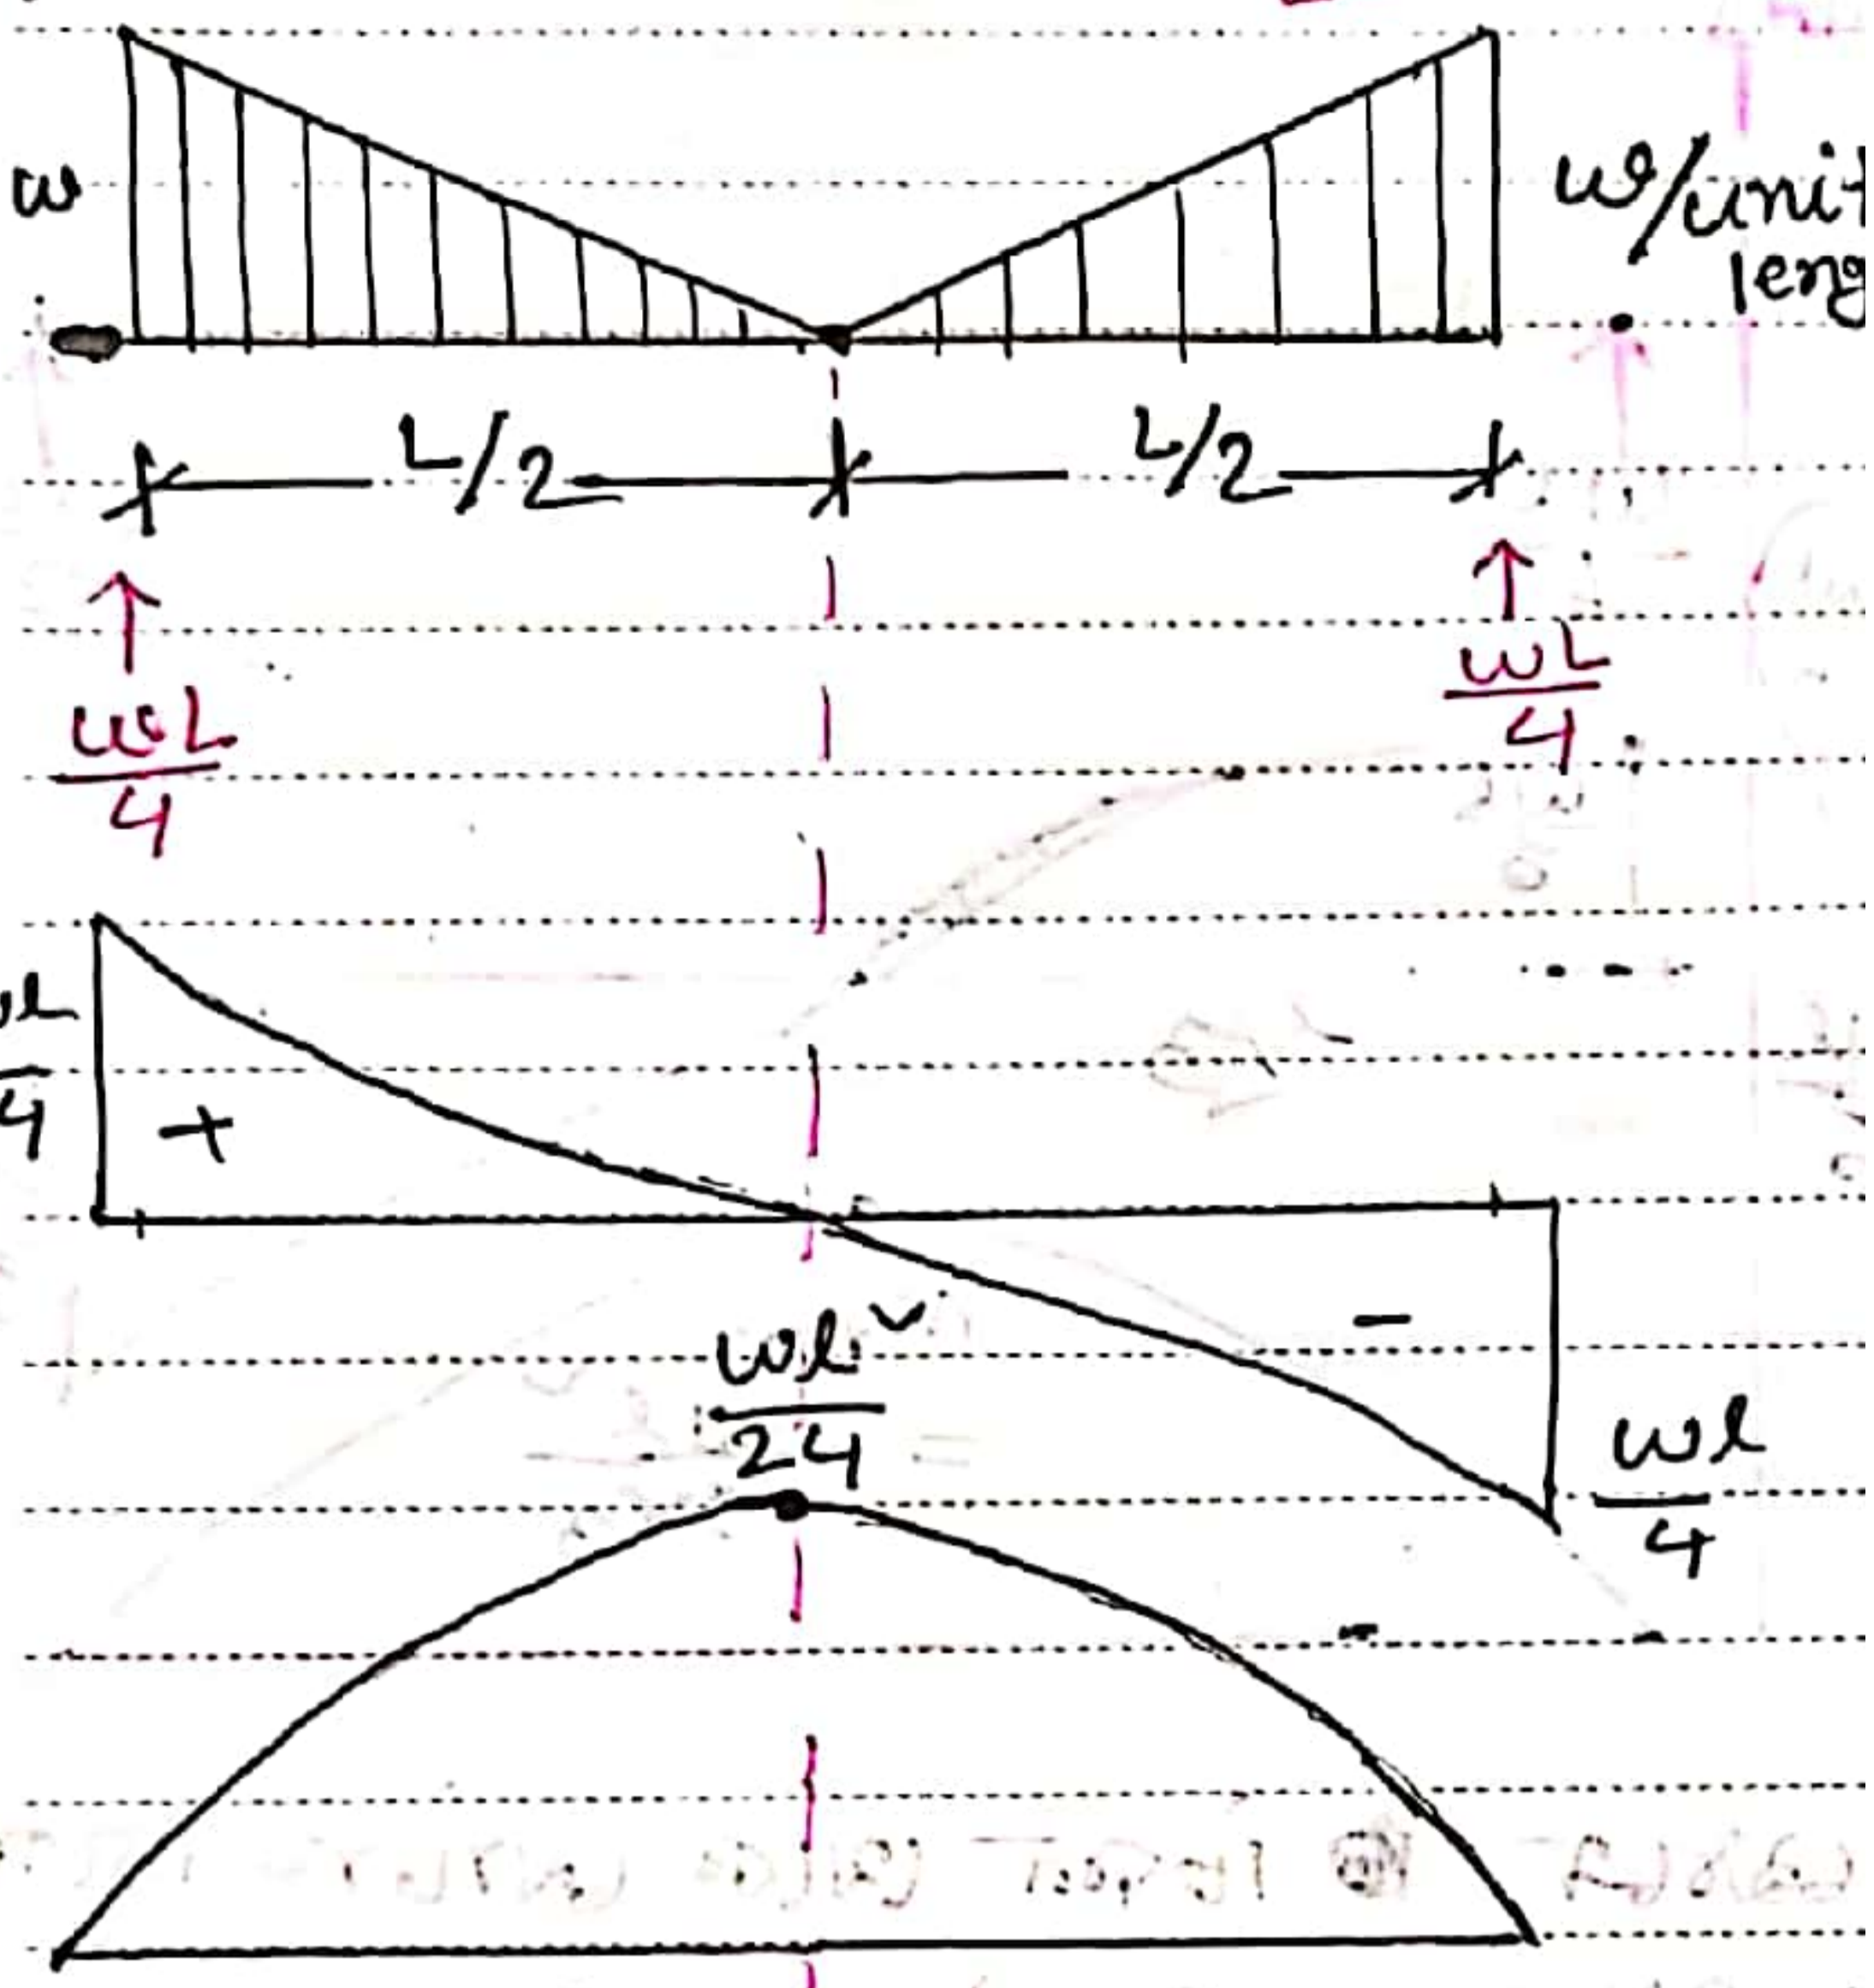 w
w/unit
leng
L/2 L/2
wL/4 wL/4
wl/4
+
-
wl²/24
wl/4